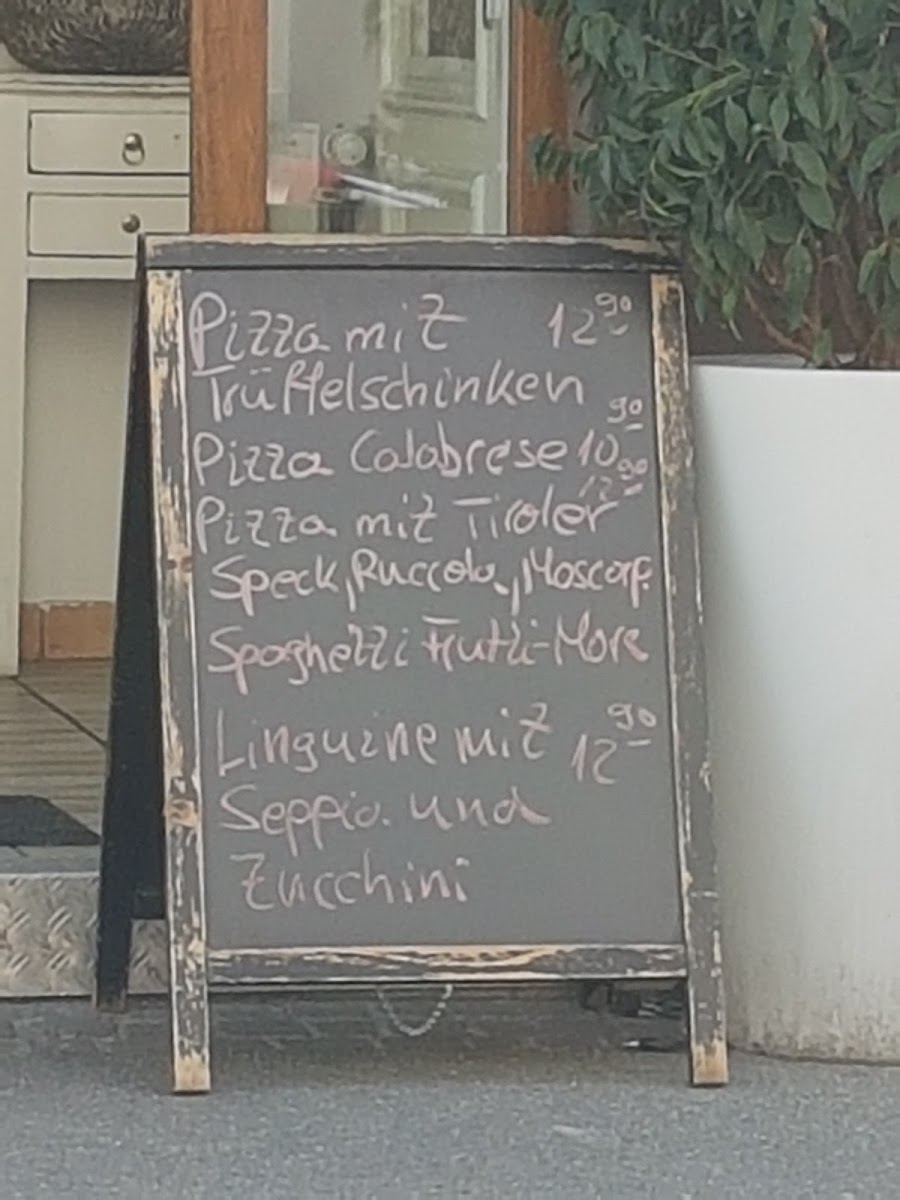 Pizza mit 12,90
Trüffelschinken
Pizza Calabrese 10,90
Pizza mit Tiroler 12,90
Speck, Ruccola, Mascarp.
Spaghetti Frutti-Mare
Linguine mit 12,90
Seppia und
Zucchini